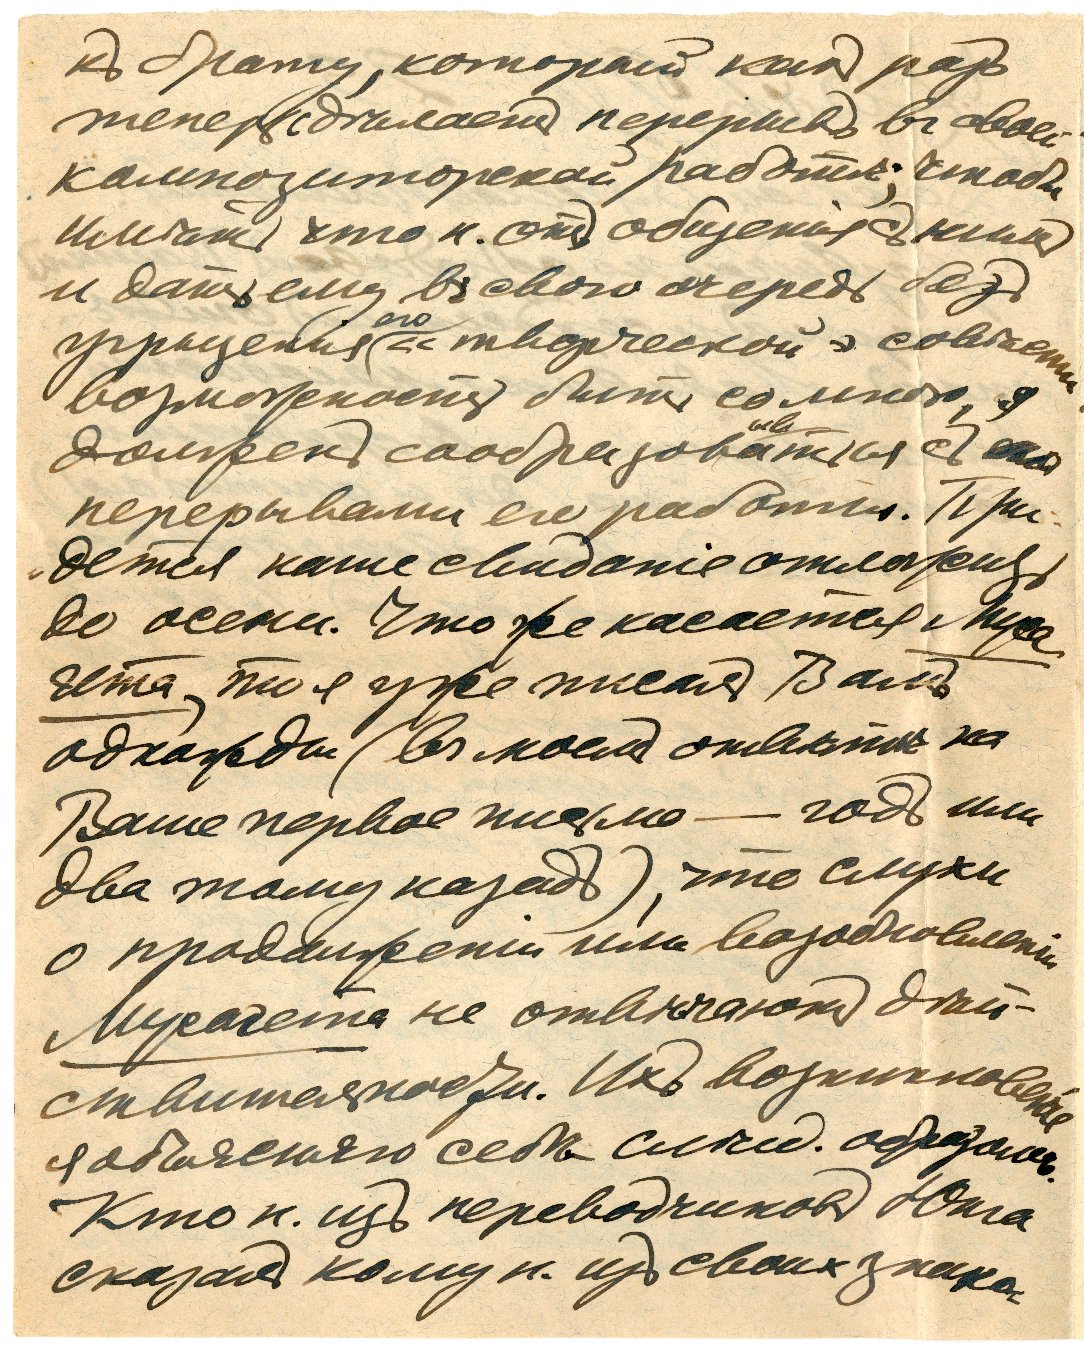 къ брату, который какъ разъ
теперь сдѣлаетъ перерывъ въ своей
композиторской работѣ; чтобы
имѣть что н. отъ общенія съ нимъ
и дать ему въ свою очередь безъ
угрызенія его творческой совѣсти
возможность быть со мною, я
долженъ сообразовываться съ
перерывами его работы. При-
дется наше свиданіе отложить
до осени. Что же касается Муса
гета, то я уже писалъ Вамъ
однажды (въ моемъ отвѣтѣ на
Ваше первое письмо — годъ или
два тому назадъ), что слухи
о продолженіи или возобновленіи
Мусагета не отвѣчаютъ дѣй-
ствительности. Ихъ возникновеніе
я объясняю себѣ слѣд. образомъ.
Кто н. изъ переводчиковъ Юнга
сказалъ кому н. изъ своихъ знако-